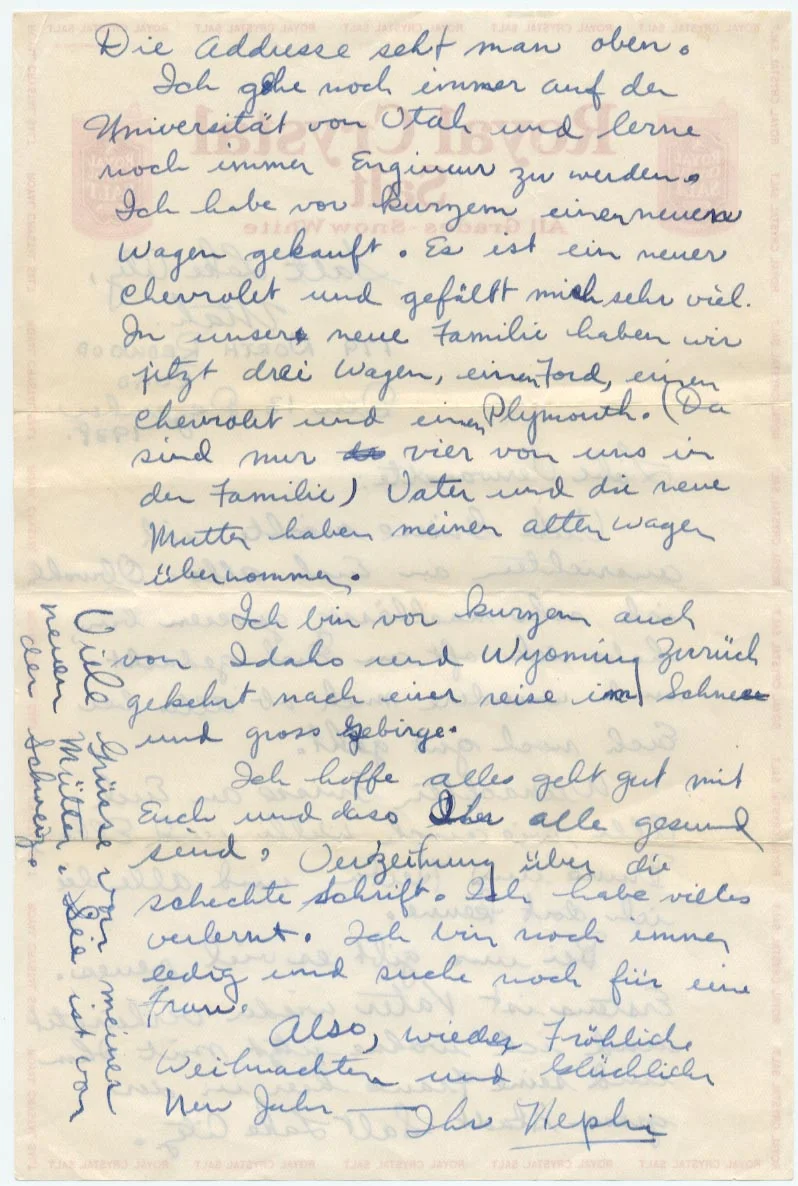 Die Addresse seht man oben.
Ich gehe noch immer auf der
Universität von Utah und lerne
noch immer Engineur zu werden.
Ich habe vor kurzem einen neuen
Wagen gekauft. Es ist ein neuer
Chevrolet und gefällt mich sehr viel.
In unsere neue Familie haben wir
jetzt drei Wagen, einen Ford, einen
Chevrolet und einen Plymouth. (Da
sind nur vier von uns in
der Familie) Vater und die neue
Mutter haben meinen alten Wagen
übernommen.
Ich bin vor kurzem auch
von Idaho und Wyoming zurück
gekehrt nach einer reise im Schnee
und gross Gebirge.
Ich hoffe alles geht gut mit
Euch und dass Ihr alle gesund
sind. Verzeihung über die
schechte Schrift. Ich habe villes
verlernt. Ich bin noch immer
ledig und suche noch für eine
Frau.
Also, wieder Fröhliche
Weihnachten und Glüchliche
New Jahr — Ihr Nephi
Viele Grüsse von meiner
neuen Mutter. Sie ist von
der Schweiz.